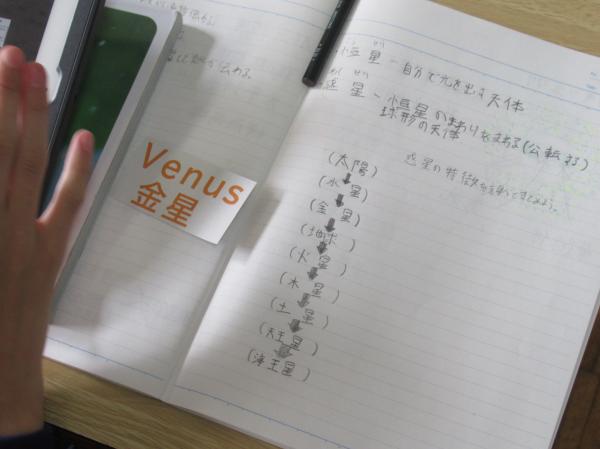 恒星 - 自分で光を出す天体
惑星 - 恒星のまわりをまわる(公転する)
球形の天体
(太陽)
(水星)
(金星)
(地球)
(火星)
(木星)
(土星)
(天王星)
(海王星)
惑星の特徴を
Venus
金星
伝わる